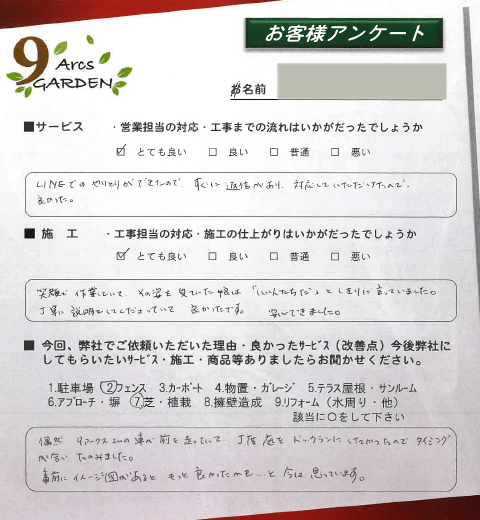 9 Arcs GARDEN
お客様アンケート
お名前
■サービス ・営業担当の対応・工事までの流れはいかがだったでしょうか
☑ とても良い □ 良い □ 普通 □ 悪い
LINEでのやりとりができたので、すぐに返信があり、対応していただけたので、
良かった。
■施 工 ・工事担当の対応・施工の仕上がりはいかがだったでしょうか
☑ とても良い □ 良い □ 普通 □ 悪い
笑顔で作業していて、その姿を見ていた娘は「いい人たちだ」としきりに言っていました。
丁寧に説明をしてくださっていて良かったです。 安心できました。
■ 今回、弊社でご依頼いただいた理由・良かったサービス（改善点）今後弊社に
してもらいたいサービス・施工・商品等ありましたらお聞かせください。
1.駐車場 ②フェンス 3.カーポート 4.物置・ガレージ 5.テラス屋根・サンルーム
6.アプローチ・塀 ⑦芝・植栽 8.擁壁造成 9.リフォーム（水周り・他）
該当に〇をして下さい
偶然 9アークスさんの車が前を走っていて、丁度庭をドックランにしたかったのでタイミング
が合い たのみました。
事前にイメージ図があると もっと良かったかも…と今は思っています。